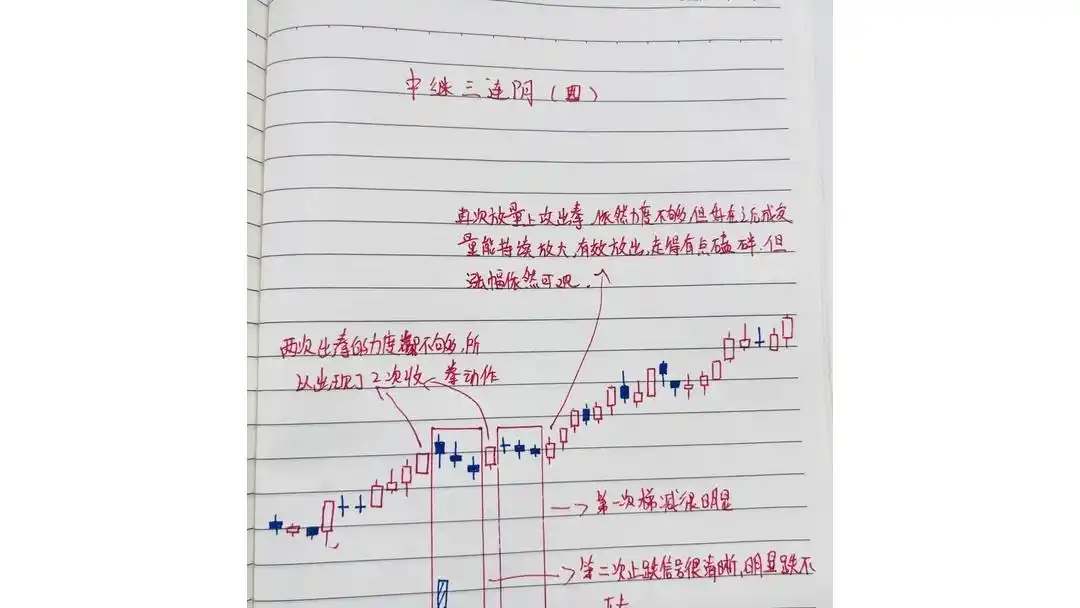 中继三连阴（四）
再次放量上攻出拳,依然力度不够但好在之后成交
量能持续放大,有效放出,走得有点磕碎.但
涨幅依然可观.
两次出拳的力度都不够,所
以出现了2次收拳动作
第一次梯减很明显
第二次止跌信号很清晰,明显跌不